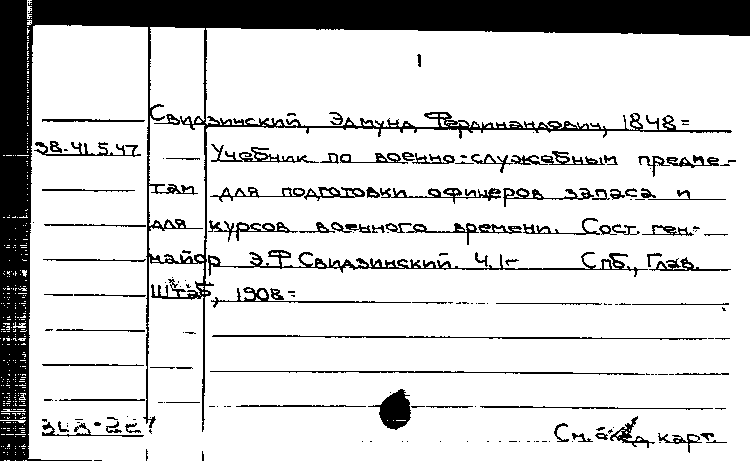 1
Свидзинский, Эдмунд Фердинандович, 1848=
38.41.5.47 Учебник по военно=служебным предме-
там для подготовки офицеров запаса и
для курсов военного времени. Сост. ген.-
майор Э.Ф. Свидзинский. Ч.1- Спб., Глав.
Штаб, 1908=
См. след. карт.